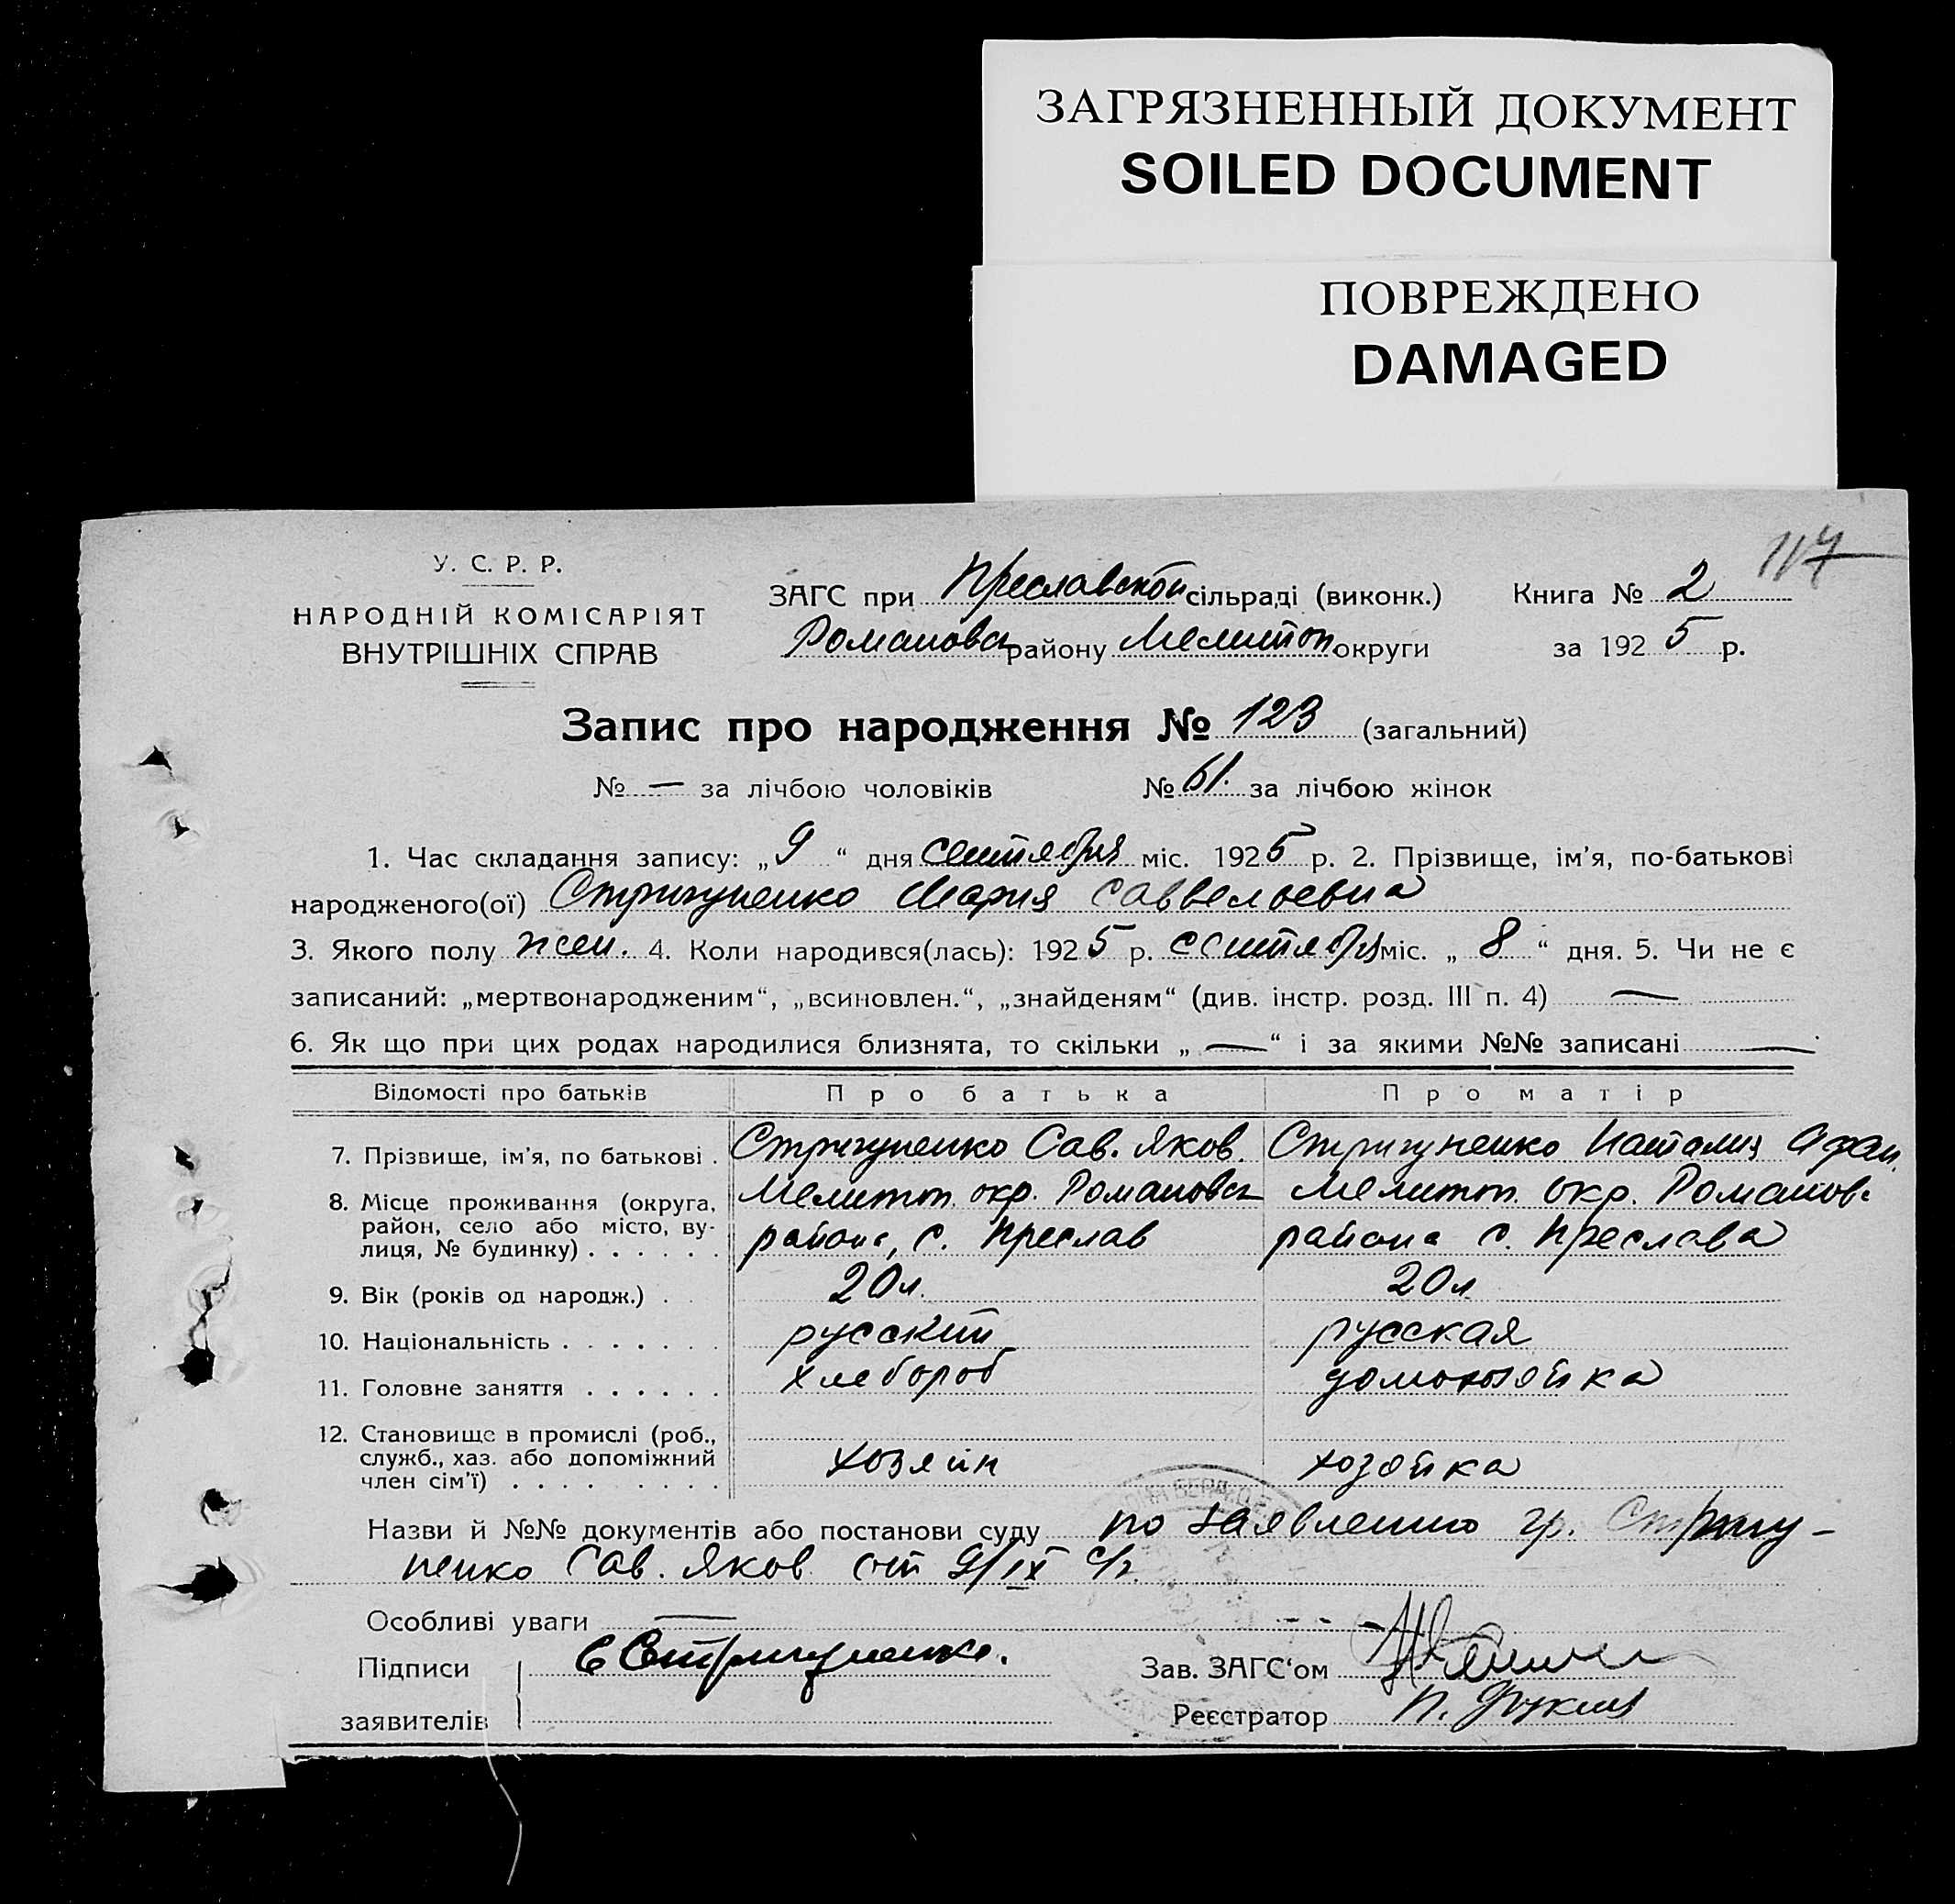 ЗАГРЯЗНЕННЫЙ ДОКУМЕНТ
SOILED DOCUMENT
ПОВРЕЖДЕНО
DAMAGED
117
У. С. Р. Р.
НАРОДНІЙ КОМІСАРІЯТ
ВНУТРІШНІХ СПРАВ
ЗАГС при Преславской сільраді (виконк.) Книга № 2
Романовск району Мелитоп. округи за 1925 р.
Запис про народження № 123 (загальний)
№ — за лічбою чоловіків № 61. за лічбою жінок
1. Час складання запису: „9“ дня сентября міс. 1925 р. 2. Прізвище, ім’я, по-батькові
народженого(ої) Стригуненко Мария Саввельевна
3. Якого полу жен. 4. Коли народився(лась): 1925 р. сентября міс. „8“ дня. 5. Чи не є
записаний: „мертвонародженим“, „всиновлен.“, „знайденям“ (див. інстр. розд. III п. 4) —
6. Як що при цих родах народилися близнята, то скільки „—“ і за якими №№ записані —
Відомості про батьків Про батька Про матір
7. Прізвище, ім’я, по батькові . Стригуненко Сав. Яков. Стригуненко Наталия Афан.
8. Місце проживання (округа, Мелитоп. окр. Романовск Мелитоп. окр. Романов.
район, село або місто, ву-
лиця, № будинку) . . . . . . района, с. Преслав района с. Преслава
9. Вік (років од народж.) . 20 л. 20 л
10. Національність . . . . . . . русский русская
11. Головне заняття . . . . . . хлебороб домохозяйка
12. Становище в промислі (роб.,
служб., хаз. або допоміжний хозяин хозяйка
член сім’ї) . . . . . . . .
Назви й №№ документів або постанови суду по заявлению гр. Стригу-
ненко Сав. Яков. от 9/IX с/г.
Особливі уваги —
Підписи С Стригуненко. Зав. ЗАГС‘ом
заявителів Реєстратор П.